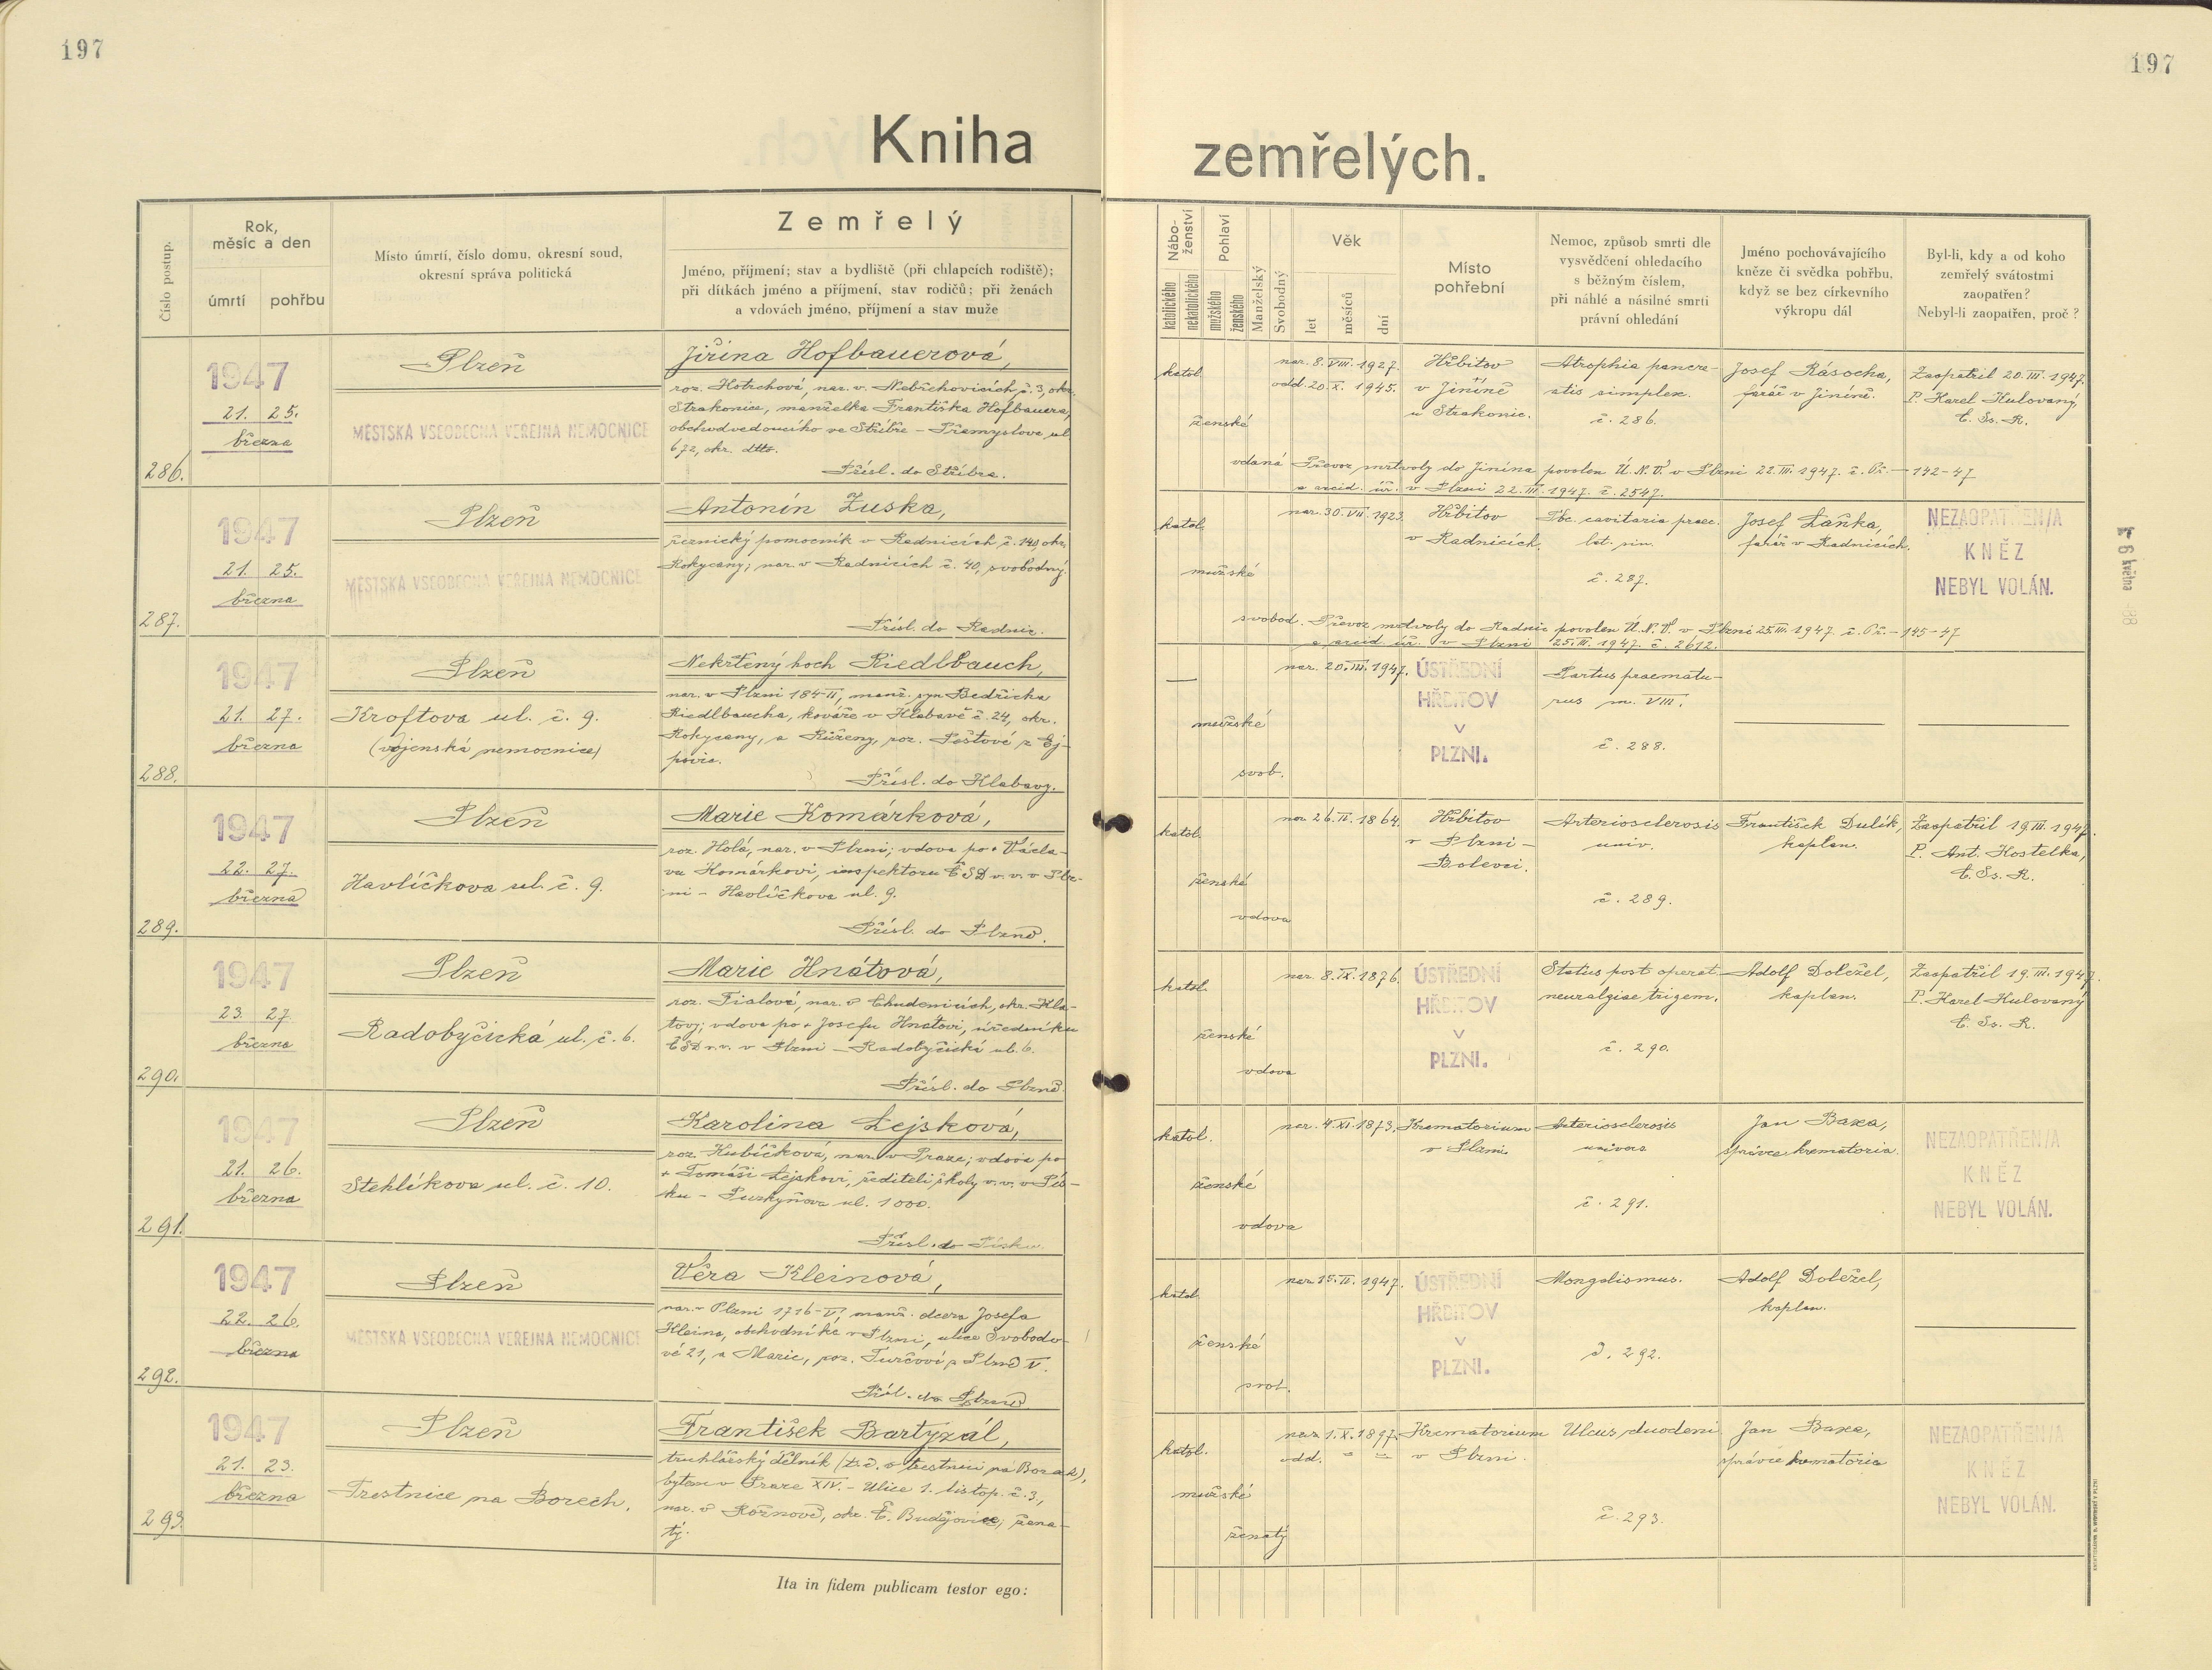 197
197
Kniha zemřelých.
Číslo postup.
Rok,
měsíc a den
úmrtí
pohřbu
Místo úmrtí, číslo domu, okresní soud,
okresní správa politická
Zemřelý
Jméno, příjmení; stav a bydliště (při chlapcích rodiště);
při dítkách jméno a příjmení, stav rodičů; při ženách
a vdovách jméno, přijmení a stav muže
Nábo-
ženství
katolického
nekatolického
Pohlaví
mužského
ženského
Manželský
Svobodný
Věk
let
měsíců
dní
Místo
pohřební
Nemoc, způsob smrti dle
vysvědčení ohledacího
s běžným číslem,
při náhlé a násilné smrti
právní ohledání
Jméno pochovávajícího
kněze či svědka pohřbu,
když se bez církevního
výkropu dál
Byl-li, kdy a od koho
zemřelý svátostmi
zaopatřen?
Nebyl-li zaopatřen, proč?
286.
1947
21. 25.
března
Plzeň
MĚSTSKÁ VŠEOBECNÁ VEŘEJNÁ NEMOCNICE
Jiřina Hofbauerová,
roz. Hotrchová, nar. v Nebřehovicích č. 3, okr.
Strakonice, manželka Františka Hofbauera,
obchodvedoucího ve Stříbře – Přemyslova ul.
672, okr. dtto.
Přísl. do Stříbra.
katol.
ženské
vdaná
nar. 8. VIII. 1927.
odd. 20. X. 1945.
Hřbitov
v Jiníně
u Strakonic.
Atrophia pancre-
atis simplex.
č. 286.
Josef Rásocha,
farář v Jiníně.
Zaopatřil 20. III. 1947.
P. Karel Hulovaný,
C. Ss. R.
Převoz mrtvoly do Jinína povolen Ú. N. V. v Plzni 22. III. 1947. č. Př. – 142-47
a arcid. úř. v Plzni 22. III. 1947. č. 2547.
287.
1947
21. 25.
března
Plzeň
MĚSTSKÁ VŠEOBECNÁ VEŘEJNÁ NEMOCNICE
Antonín Zuska,
řeznický pomocník v Radnicích č. 140, okr.
Rokycany; nar. v Radnicích č. 40, svobodný.
Přísl. do Radnic.
katol.
mužské
svobod.
nar. 30. VII. 1923.
Hřbitov
v Radnicích.
Tbc. cavitaria praec.
lat. sin.
č. 287.
Josef Laňka,
farář v Radnicích.
NEZAOPATŘEN/A
KNĚZ
NEBYL VOLÁN.
Převoz mrtvoly do Radnic povolen Ú. N. V. v Plzni 25. III. 1947. č. Př. – 145-47
a arcid. úř. v Plzni 25. III. 1947. č. 2612.
6 května
288.
1947
21. 27.
března
Plzeň
Kroftova ul. č. 9.
(vojenská nemocnice)
Nekřtěný hoch Riedlbauch,
nar. v Plzni 184-II, manž. syn Bedřicha
Riedlbaucha, kováře v Hlabavě č. 24, okr.
Rokycany, a Růženy, roz. Peštové z Ej-
povic.
Přísl. do Klabavy.
—
mužské
svob.
nar. 20. III. 1947.
ÚSTŘEDNÍ
HŘBITOV
V
PLZNI.
Partus praematu-
rus m. VIII.
č. 288.
289.
1947
22. 27.
března
Plzeň
Havlíčkova ul. č. 9.
Marie Komárková,
roz. Holá, nar. v Plzni; vdova po + Václa-
vu Komárkovi, inspektoru ČSD v. v. v Plz-
ni – Havlíčkova ul. 9.
Přísl. do Plzně.
katol.
ženské
vdova
nar. 26. II. 1864.
Hřbitov
v Plzni –
Bolevci.
Arteriosclerosis
univ.
č. 289.
František Dulík,
kaplan.
Zaopatřil 19. III. 1947.
P. Ant. Kostelka,
C. Ss. R.
290.
1947
23. 27.
března
Plzeň
Radobyčická ul. č. 6.
Marie Hnátová,
roz. Fialová, nar. v Chudenicích, okr. Kla-
tovy; vdova po + Josefu Hnátovi, úředníku
ČSD v. v. v Plzni – Radobyčická ul. 6.
Přísl. do Plzně.
katol.
ženské
vdova
nar. 8. IX. 1876.
ÚSTŘEDNÍ
HŘBITOV
V
PLZNI.
Status post operat.
neuralgiae trigem.
č. 290.
Adolf Doležel,
kaplan.
Zaopatřil 19. III. 1947.
P. Karel Hulovaný
C. Ss. R.
291.
1947
21. 26.
března
Plzeň
Stehlíkova ul. č. 10.
Karolina Lejsková,
roz. Kubíčková, nar. v Praze; vdova po
+ Tomáši Lejskovi, řediteli školy v. v. v Pís-
ku – Purkyňova ul. 1000.
Přísl. do Písku.
katol.
ženské
vdova
nar. 4. XI. 1873.
Krematorium
v Plzni.
Arteriosclerosis
univers
č. 291.
Jan Baxa,
správce krematoria.
NEZAOPATŘEN/A
KNĚZ
NEBYL VOLÁN.
292.
1947
22. 26.
března
Plzeň
MĚSTSKÁ VŠEOBECNÁ VEŘEJNÁ NEMOCNICE
Věra Kleinová,
nar. v Plzni 1716-V, manž. dcera Josefa
Kleina, obchodníka v Plzni, ulice Svobodo-
vé 21, a Marie, roz. Turčové z Plzně V.
Přísl. do Plzně.
katol.
ženské
svob.
nar. 15. II. 1947.
ÚSTŘEDNÍ
HŘBITOV
V
PLZNI.
Mongolismus.
č. 292.
Adolf Doležel,
kaplan.
293.
1947
21. 23.
března
Plzeň
Trestnice na Borech.
František Bartyzál,
truhlářský dělník (t. č. v trestnici na Borech),
bytem v Praze XIV. – Ulice 1. listop. č. 3,
nar. v Rožnově, okr. Č. Budějovice; žena-
tý.
katol.
mužské
ženatý
nar. 1. X. 1897.
odd. – –
Krematorium
v Plzni.
Ulcus duodeni
č. 293.
Jan Baxa,
správce krematoria
NEZAOPATŘEN/A
KNĚZ
NEBYL VOLÁN.
Ita in fidem publicam testor ego: